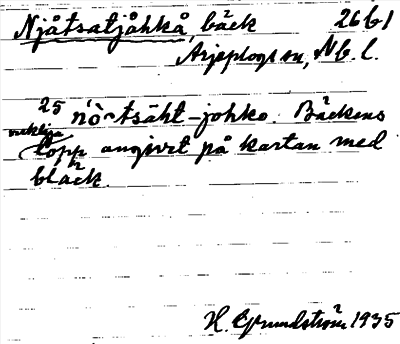 Njåtsatjåhkå, bäck 26b1
Arjeplogs sn, Nb. l.
25 ńò̀·tsäht-johko. Bäckens
verkliga
lopp angivet på kartan med
bläck.
H. Grundström 1935